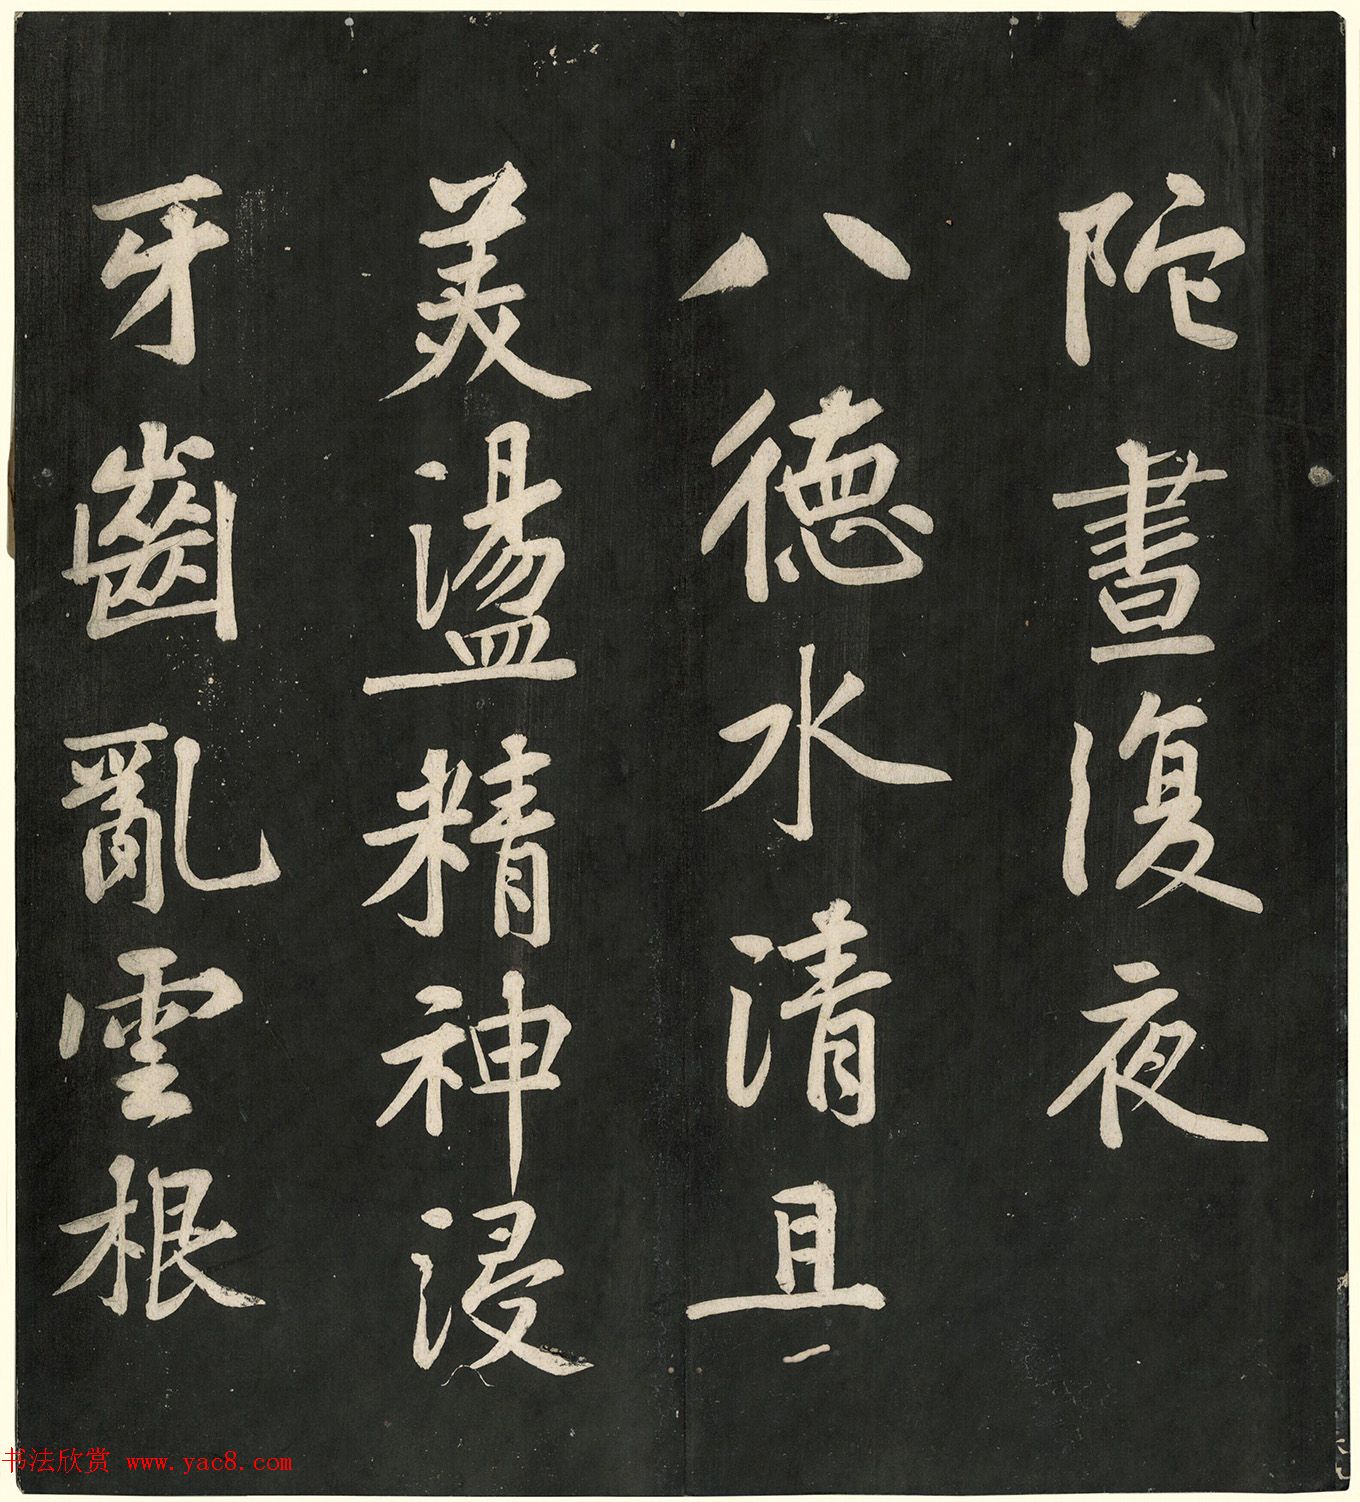 陀晝復夜
八德水清且
美盪精神浸
牙齒亂雲根
书法欣赏 www.yac8.com